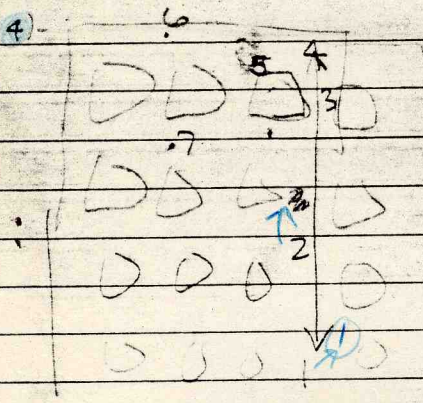 4)
6
5
4
3
7
2
1